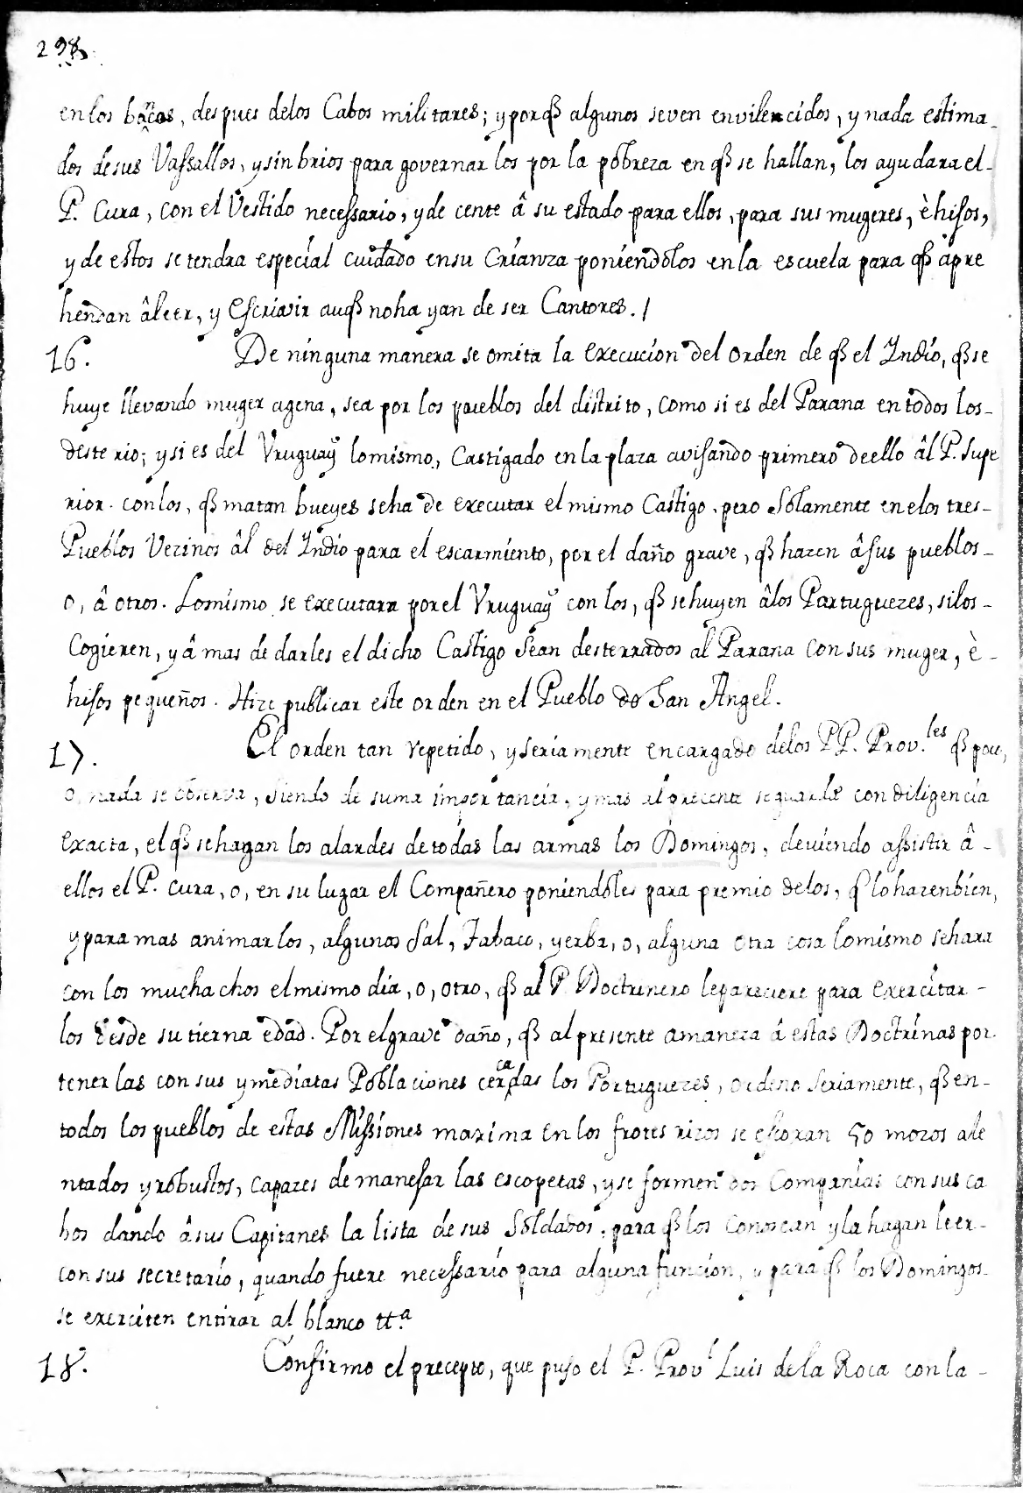 298
en los bancos, despues delos Cabos militares; y porq̃ algunos seven envilencidos, y nada estima-
dos desus Vassallos, y sin brios para governar los por la pobreza en q̃ se hallan, los ayudara el-
P. Cura, con el Vestido necessario, y de cente â su estado para ellos, para sus mugeres, è hijos,
y de estos se tendra especial cuidado en su Crianza poniendolos en la escuela para q̃ apre
hendan âleer, y Escrivir auq̃ no ha yan de ser Cantores. /
16. De ninguna manera se omita la execucion del orden de q̃ el Indio, q̃ se
huye llevando muger agena, sea por los pueblos del distrito, como si es del Parana en todos los-
deste rio; y si es del Vruguaỹ lo mismo, Castigado en la plaza avisando primero de ello âl P. Supe
rior. con los, q̃ matan bueyes se ha de executar el mismo Castigo, pero Solamente en elos tres-
Pueblos Vezinos âl del Indio para el escarmiento, por el daño grave, q̃ hazen âsus pueblos-
o, â otros. Lo mismo se executara por el Vruguaỹ con los, q̃ se huyen âlos Portuguezes, si los-
Cogieren, y â mas de darles el dicho Castigo Sean desterrados al Parana con sus muger, è-
hijos pequeños. Hize publicar este orden en el Pueblo do San Angel.
17. El orden tan repetido, y seriamente encargado delos PP. Prov.les q̃ poco,
o, nada se observa, siendo de suma importancia, y mas al precente se guarde con diligencia
exacta, el q̃ se hagan los alardes de todas las armas los Domingos, deviendo assistir â-
ellos el P. cura, o, en su lugar el Compañero poniendoles para premio delos, q̃ lo hazen bien,
y para mas animarlos, algunos Sal, Tabaco, yerba, o, alguna otra cosa lo mismo se hara
con los muchachos el mismo dia, o, otro, q̃ al P. Doctrinero le pareciere para exercitar-
los desde su tierna edad. Por el grave daño, q̃ al presente amaneza â estas Doctrinas por
tener las con sus ymediatas Poblaciones cercadas los Portuguezes, ordeno seriamente, q̃ en-
todos los pueblos de estas Missiones maxima en los frotes rizos se escoxan 50 mozos ale
ntados y robustos, capazes de manejar las escopetas, y se formen dos Companias con sus ca
bos dando âsus Capitanes la lista de sus Soldados, para q̃ los conoscan y la hagan leer-
con sus secretario, quando fuere necessario para alguna funcion, y para q̃ los Domingos-
se exerciten en tirar al blanco ttª
18. Confirmo el precepto, que puso el P. Provl Luis de la Roca con la-